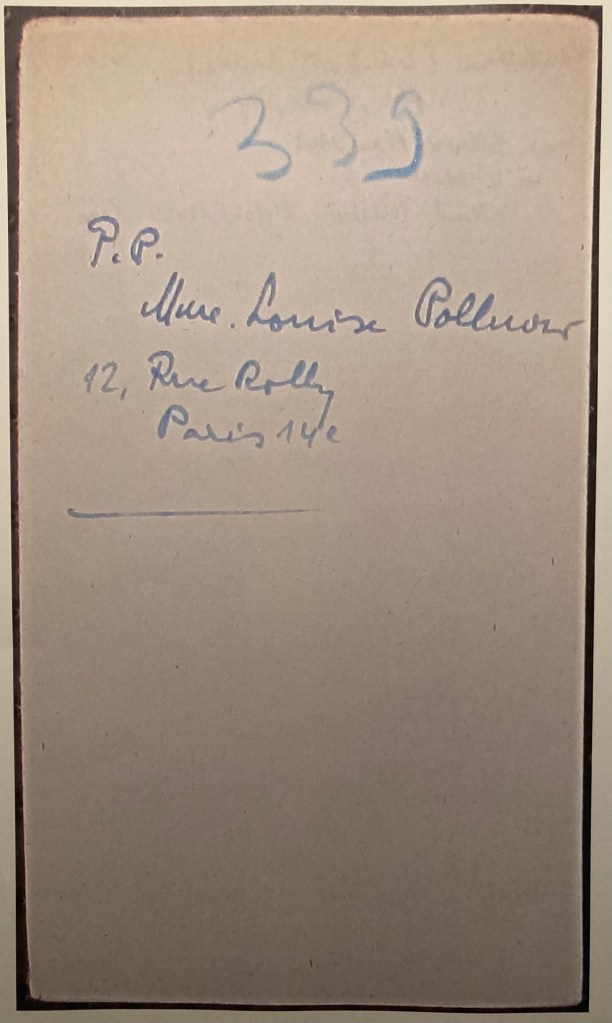 339
P.P.
Mme. Louise Pollnow
12, Rue Rolly
Paris 14e